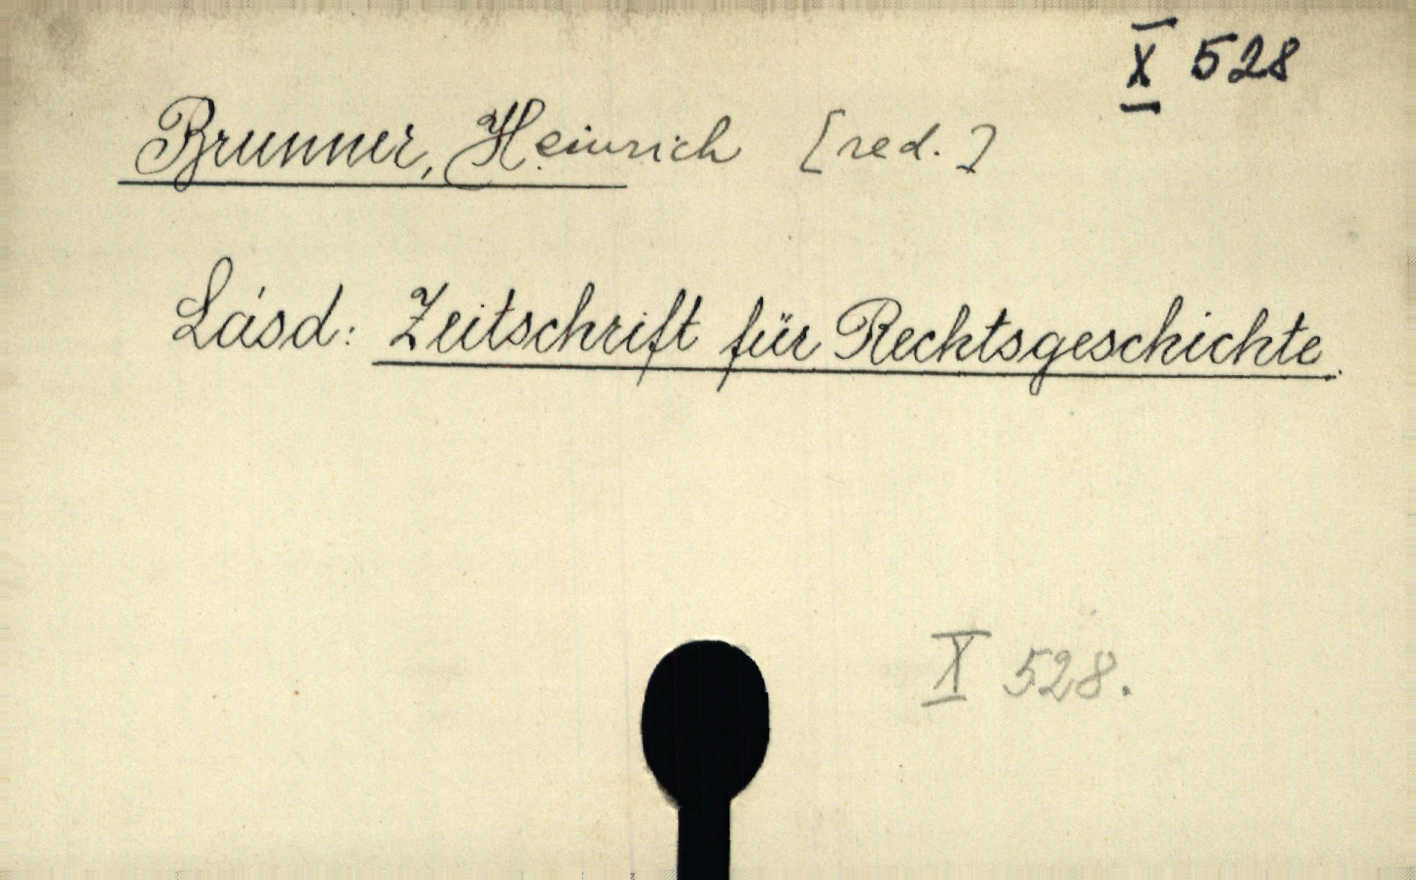 X 528
Brunner, Heinrich [red.]
Lásd: Zeitschrift für Rechtsgeschichte.
X 528.